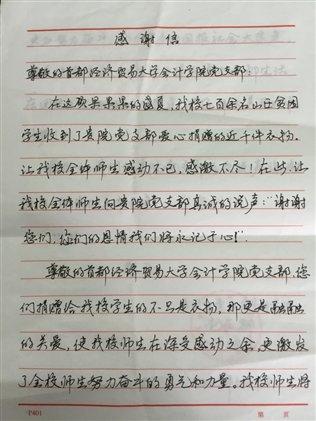 感谢信
尊敬的首都经济贸易大学会计学院党支部:
在这硕果累累的盛夏,我校七百余名山区贫困
学生收到了贵院党支部爱心捐赠的近千件衣物。
让我校全体师生感动不已,感激不尽!在此,让
我校全体师生向贵院党支部真诚的说声:“谢谢
您们,你们的恩情我们将永记于心!”
尊敬的首都经济贸易大学会计学院党支部,您
们捐赠给我校学生的不只是衣物,那更是融融
的关爱,使我校师生在深受感动之余,更激发
了全校师生努力奋斗的勇气和力量。我校师生将
P401
第 页